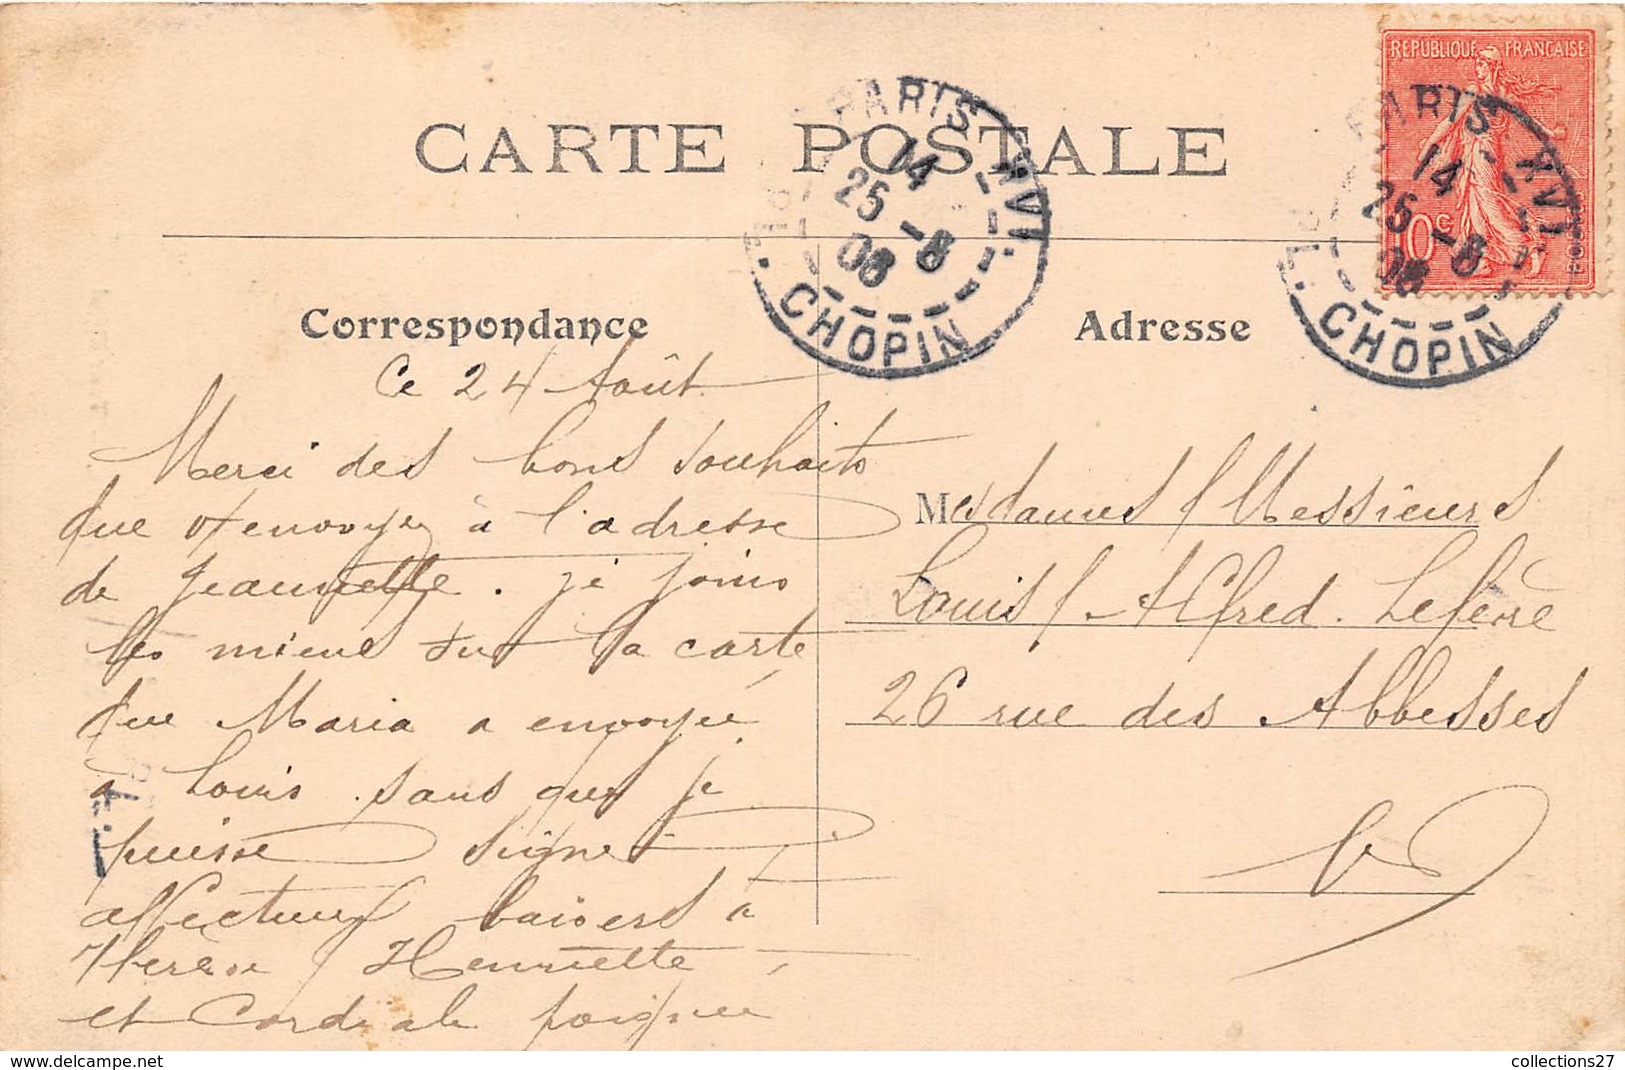 CARTE POSTALE
REPUBLIQUE FRANCAISE
10c
PARIS XVI
14
25 -8
08
PL. CHOPIN
PARIS XVI
14
25 -8
08
PL. CHOPIN
Correspondance
Adresse
Ce 24 Août
Merci des bons souhaits
que envoyez à l'adresse
de Jeannette. je joins
les miens sur la carte
que Maria a envoyée
a Louis sans que je
puisse signer
affectueux baisers à
Therèse Henriette
et Cordiale poignée
Mesdames / Messieurs
Louis / Alfred. Lefèvre
26 rue des Abbesses
collections27